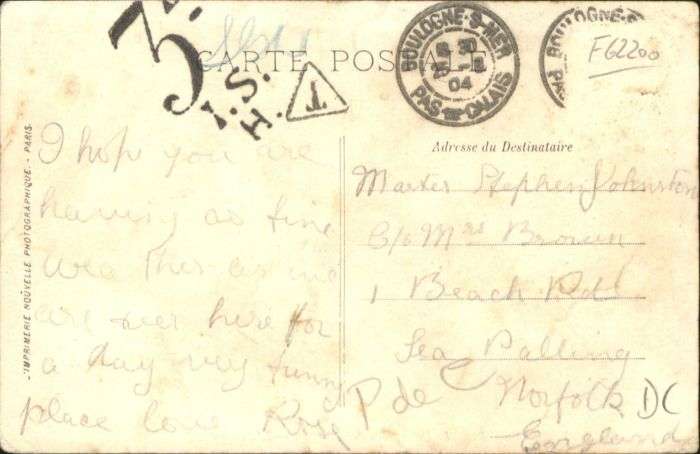 CARTE POSTALE
3
I.S.
H.
T
BOULOGNE-S-MER
04
PAS-DE-CALAIS
BOULOGNE-S
PAS
FG2200
Adresse du Destinataire
I hop you are
having as fine
wea ther as we
are over here for
a day very funny
place love Rose
Master Stephen Johnston
C/o Mrs Brown
1 Beach Rd
Sea Palling
Norfolk
England
P de C
DC
IMPRIMERIE NOUVELLE PHOTOGRAPHIQUE. - PARIS.